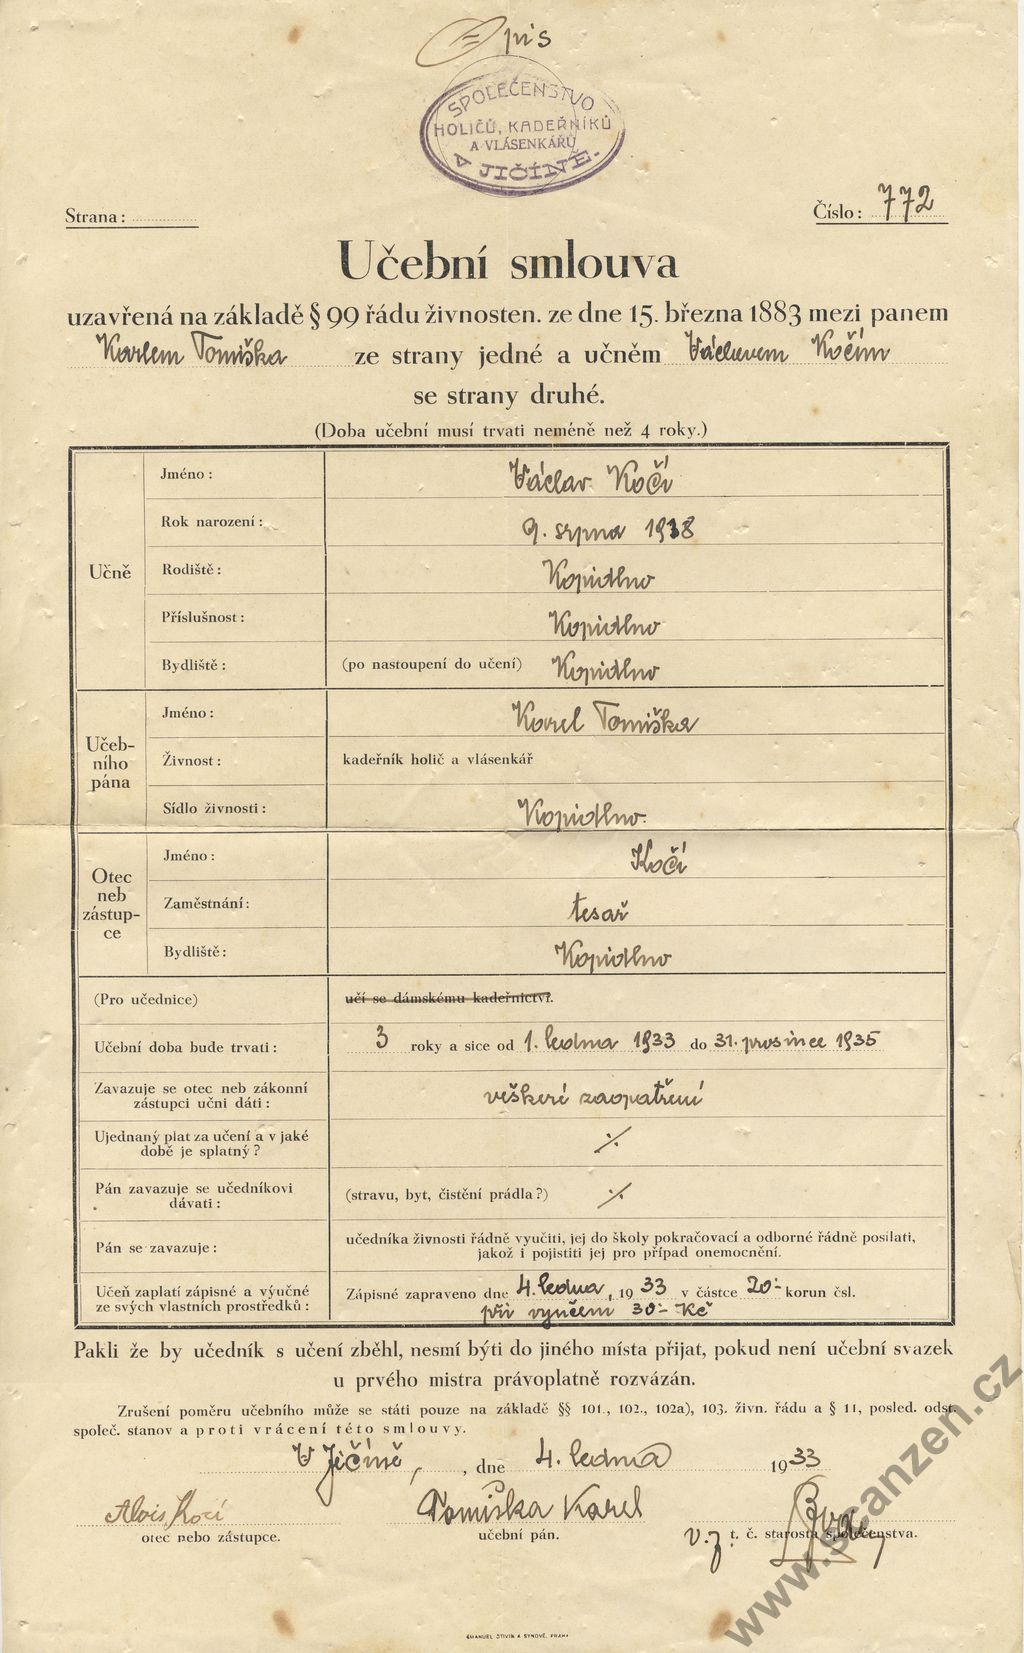 Opis
SPOLEČENSTVO
HOLIČŮ, KADEŘNÍKŮ
A VLÁSENKÁŘŮ
V JIČÍNĚ.
Strana:
Číslo: 772
Učební smlouva
uzavřená na základě § 99 řádu živnosten. ze dne 15. března 1883 mezi panem
Karlem Tomiška ze strany jedné a učněm Václavem Kočím
se strany druhé.
(Doba učební musí trvati neméně než 4 roky.)
Učně
Jméno: Václav Kočí
Rok narození: 9. srpna 1918
Rodiště: Kopidlno
Příslušnost: Kopidlno
Bydliště: (po nastoupení do učení) Kopidlno
Učeb-
ního
pána
Jméno: Karel Tomiška
Živnost: kadeřník holič a vlásenkář
Sídlo živnosti: Kopidlno.
Otec
neb
zástup-
ce
Jméno: Kočí
Zaměstnání: tesař
Bydliště: Kopidlno
(Pro učednice) učí se dámskému kadeřnictví.
Učební doba bude trvati: 3 roky a sice od 1. ledna 1933 do 31. prosince 1935
Zavazuje se otec neb zákonní
zástupci učni dáti: veškeré zaopatření
Ujednaný plat za učení a v jaké
době je splatný? ./.
Pán zavazuje se učedníkovi
dávati: (stravu, byt, čistění prádla?) ./.
Pán se zavazuje: učedníka živnosti řádně vyučiti, jej do školy pokračovací a odborné řádně posilati,
jakož i pojistiti jej pro případ onemocnění.
Učeň zaplatí zápisné a výučné
ze svých vlastních prostředků: Zápisné zapraveno dne 4. ledna, 1933 v částce 20.- korun čsl.
při vyučení 30.- Kč
Pakli že by učedník s učení zběhl, nesmí býti do jiného místa přijat, pokud není učební svazek
u prvého mistra právoplatně rozvázán.
Zrušení poměru učebního může se státi pouze na základě §§ 101., 102., 102a), 103. živn. řádu a § 11, posled. odst.
společ. stanov a proti vrácení této smlouvy.
V Jičíně, , dne 4. ledna 1933
Alois Kočí
otec nebo zástupce.
Tomiška Karel
učební pán.
v. z. t. č. starosta společenstva.
EMANUEL STIVÍN A SYNOVÉ, PRAHA
www.scanzen.cz